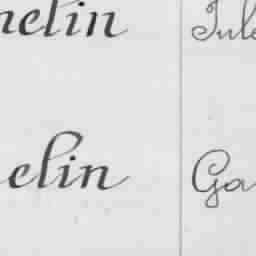 nelin Jule
elin Ga